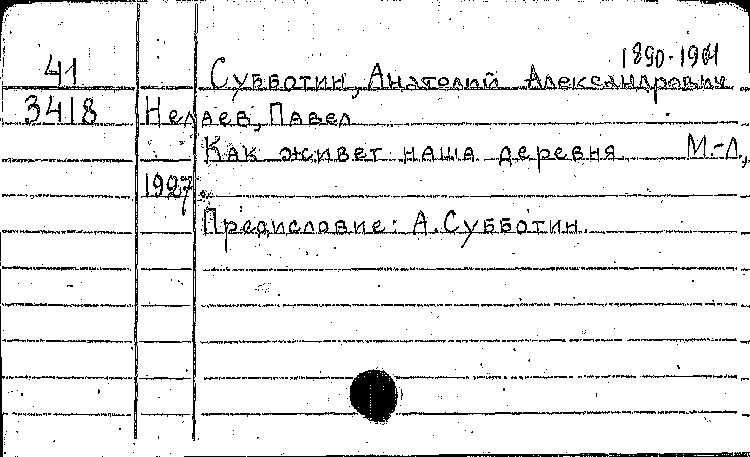 1890-1961
41 Субботин, Анатолий Александрович
3418 Нелаев, Павел
Как живет наша деревня М.-Л.,
1927.
Предисловие: А. Субботин.